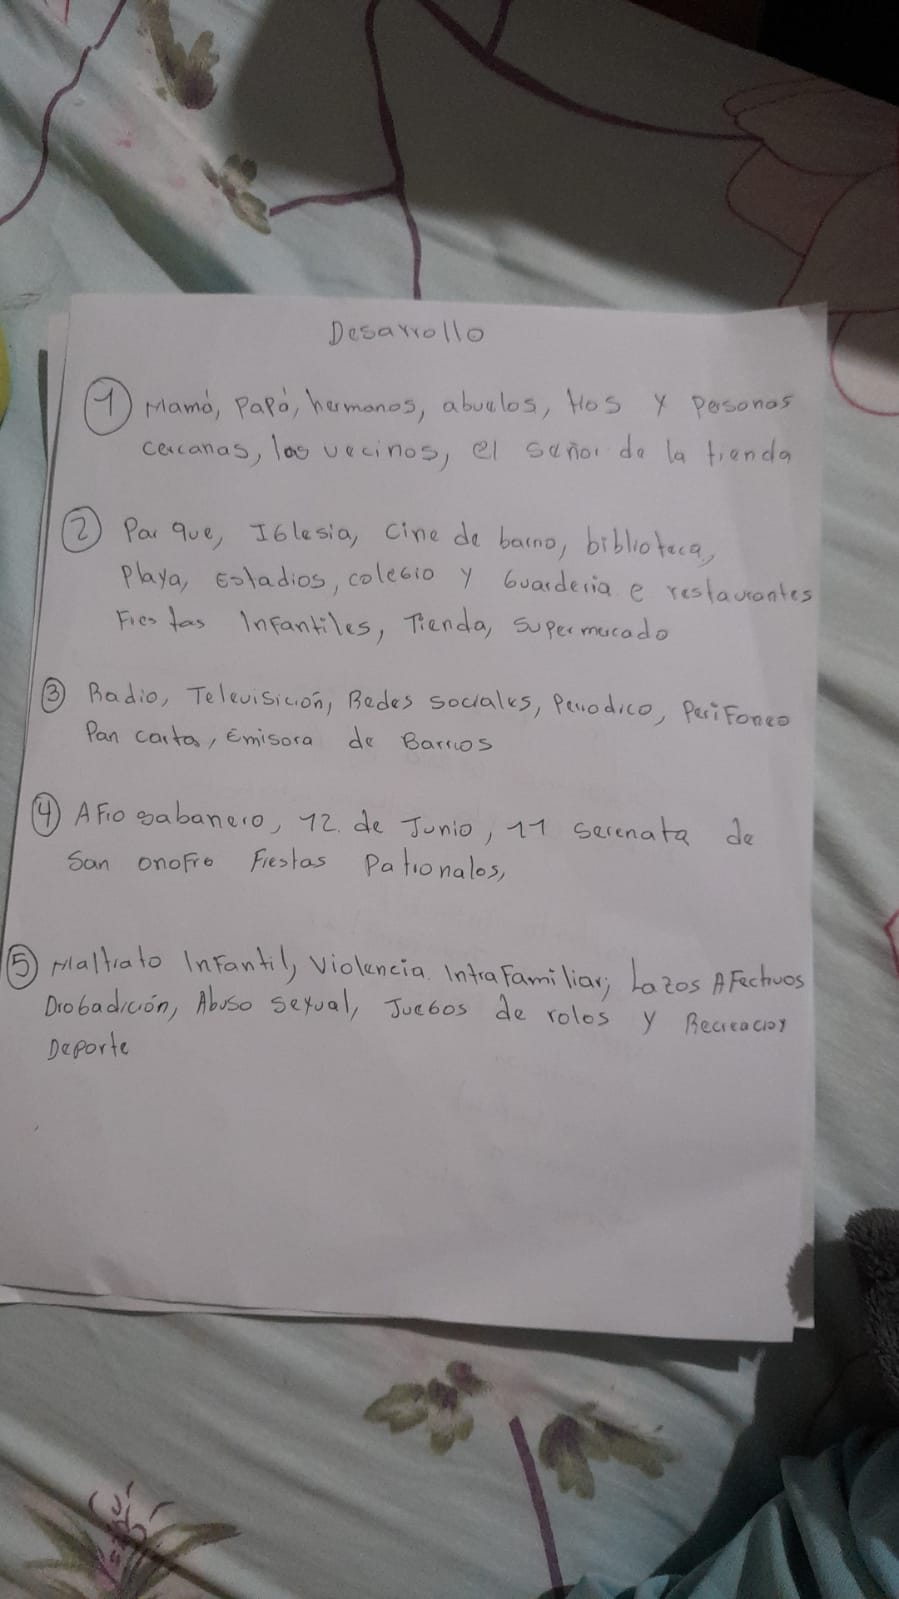 Desarrollo
1 Mamá, Papá, hermanos, abuelos, tios y Personas
cercanas, los vecinos, el señor de la tienda
2 Parque, Iglesia, Cine de barrio, biblioteca,
Playa, Estadios, colegio y Guarderia e restaurantes
Fiestas Infantiles, Tienda, Supermercado
3 Radio, Televisición, Redes sociales, Periodico, PeriFoneo
Pan carta, Emisora de Barrios
4 AFro sabanero, 12 de Junio, 11 Serenata de
San onoFre Fiestas Patronales,
5 Maltrato InFantil, Violencia IntraFamiliar, Lazos AFectivos
Drogadicción, Abuso sexual, Juegos de roles y Recreacion
Deporte